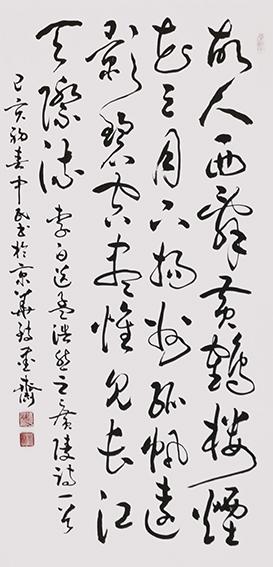 故人西辭黃鶴樓煙
花三月下揚州孤帆遠
影碧空盡惟見長江
天際流 李白送孟浩然之廣陵詩一首
己亥初春中民書於京華墨齋